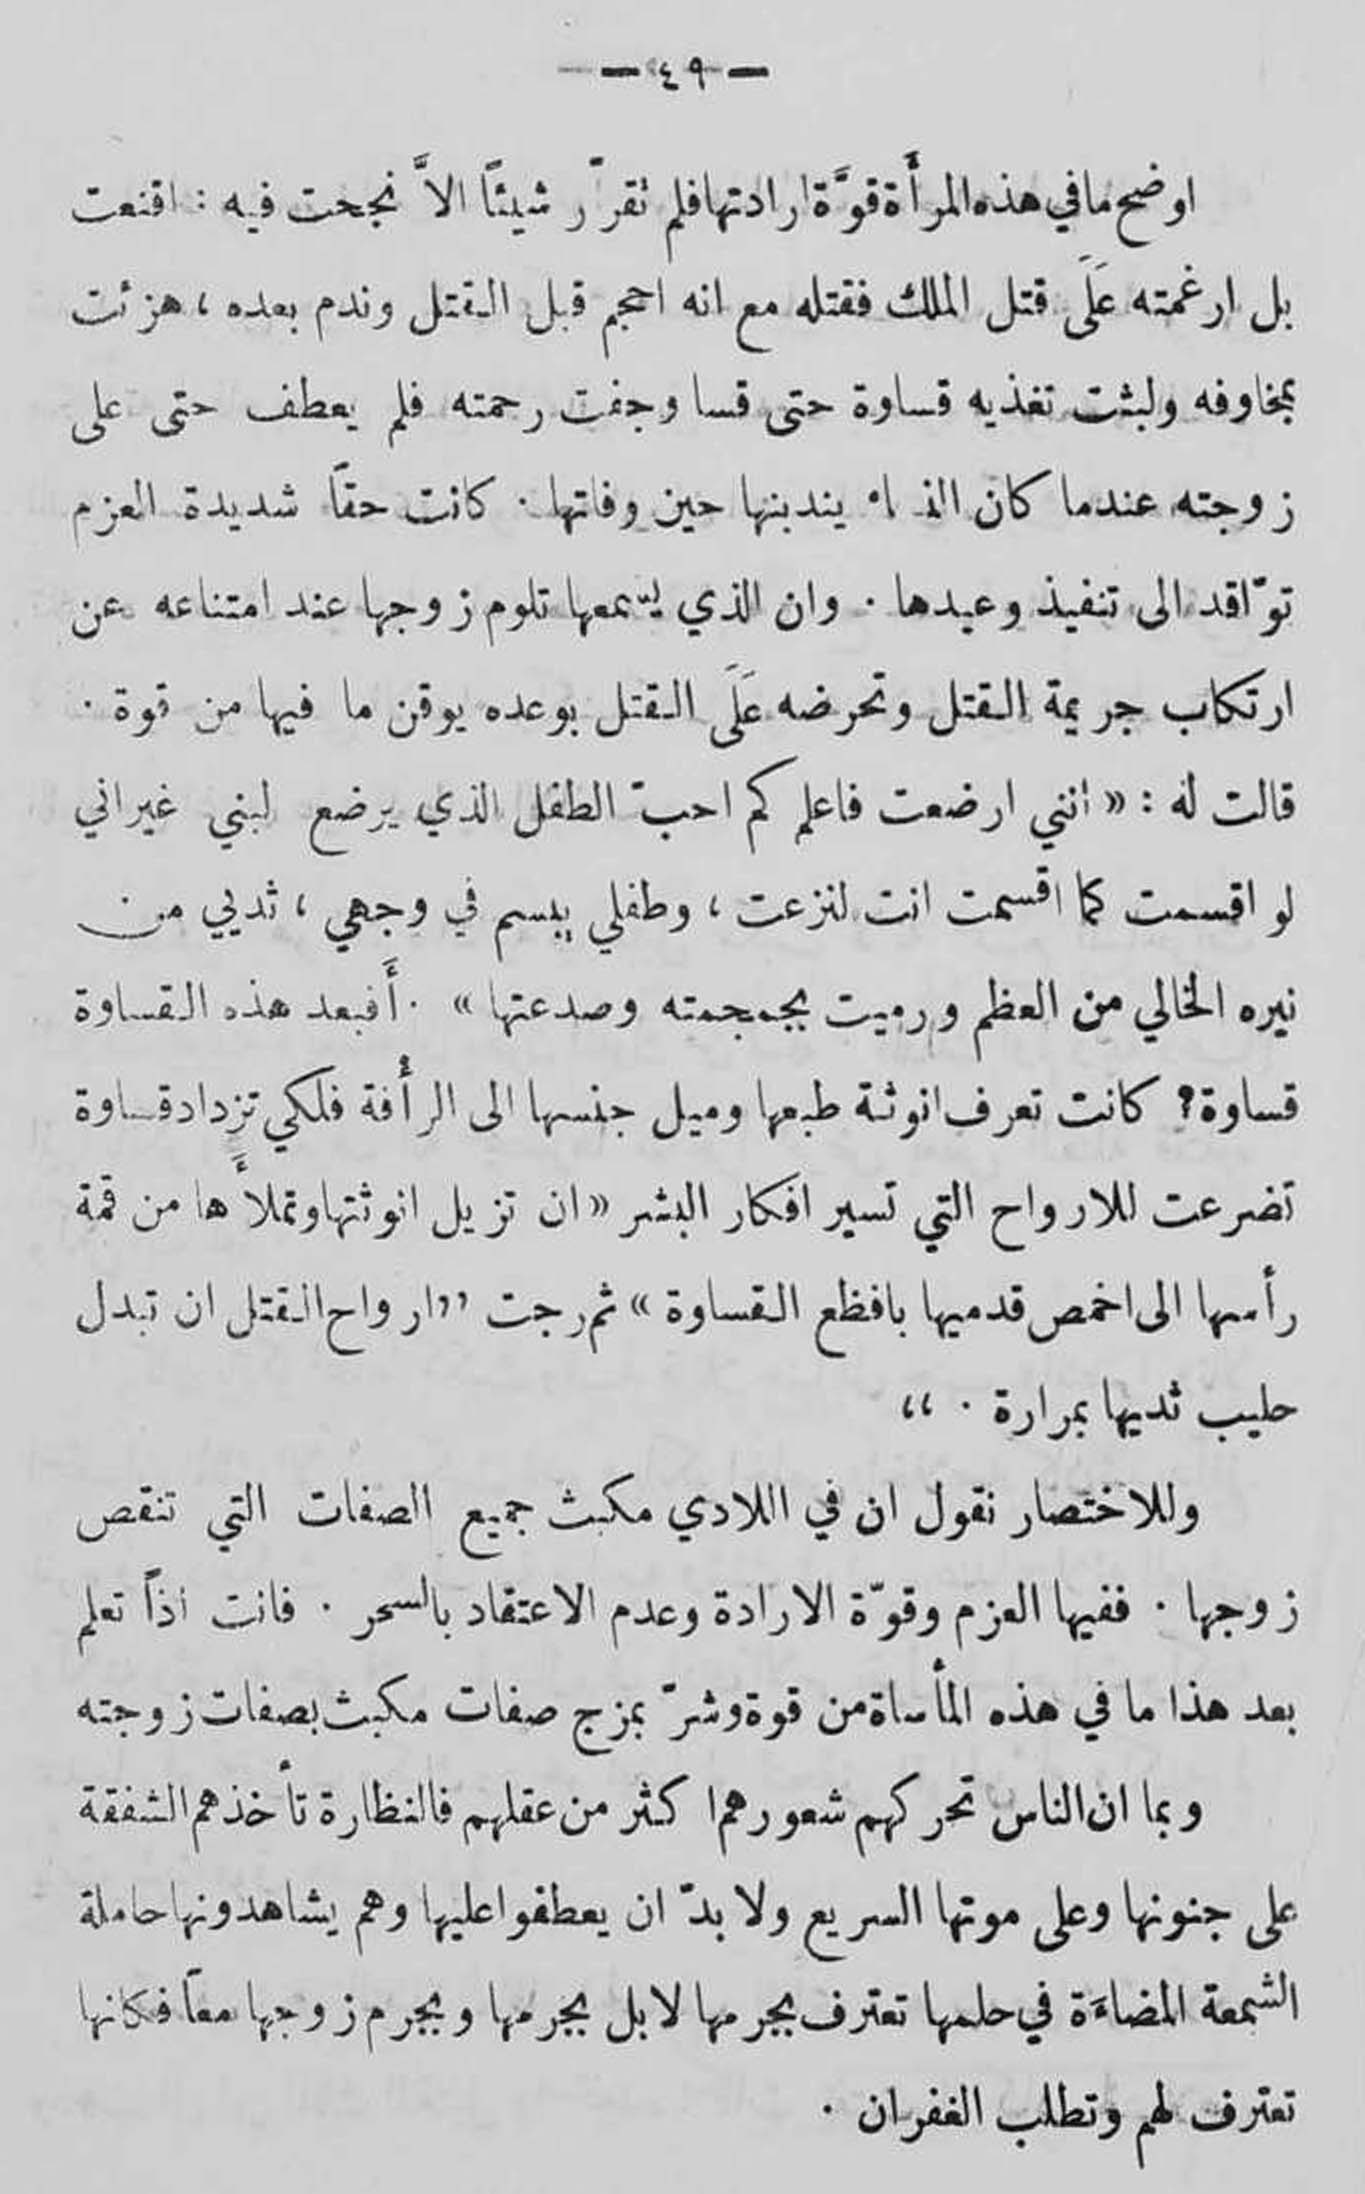 — ٤٩ —
اوضح ما في هذه المرأَة قوَّة ارادتها فلم تقرّر شيئًا الاَّ نجحت فيه : اقنعت
بل ارغمته عَلَى قتل الملك فقتله مع انه احجم قبل القتل وندم بعده ، هزئت
بمخاوفه ولبثت تغذيه قساوة حتى قسا وجفت رحمته فلم يعطف حتى على
زوجته عندما كان النساء يندبنها حين وفاتها . كانت حقًا شديدة العزم
توّاقد الى تنفيذ وعيدها . وان الذي يسمعها تلوم زوجها عند امتناعه عن
ارتكاب جريمة القتل وتحرضه عَلَى القتل بوعده يوقن ما فيها من قوة .
قالت له : « انني ارضعت فاعلم كم احبّ الطفل الذي يرضع لبني غير اني
لو اقسمت كما اقسمت انت لنزعت ، وطفلي يبسم في وجهي ، ثديي من
نيره الخالي من العظم ورميت بجمجمته وصدعتها » . أَفبعد هذه القساوة
قساوة ؟ كانت تعرف انوثة طبعها وميل جنسها الى الرأْفة فلكي تزداد قساوة
تضرعت للارواح التي تسير افكار البشر « ان تزيل انوثتها وتملأَها من قمة
رأسها الى اخمص قدميها بافظع القساوة » ثم رجت ,,ارواح القتل ان تبدل
حليب ثديها بمرارة . ،،
وللاختصار نقول ان في اللادي مكبث جميع الصفات التي تنقص
زوجها . ففيها العزم وقوّة الارادة وعدم الاعتقاد بالسحر . فانت اذاً تعلم
بعد هذا ما في هذه المأساة من قوة وشرّ بمزج صفات مكبث بصفات زوجته
وبما ان الناس تحركهم شعورهم اكثر من عقلهم فالنظارة تأخذهم الشفقة
على جنونها وعلى موتها السريع ولا بدّ ان يعطفوا عليها وهم يشاهدونها حاملة
الشمعة المضاءَة في حلمها تعترف بجرمها لا بل بجرمها وبجرم زوجها معًا فكانها
تعترف لهم وتطلب الغفران .